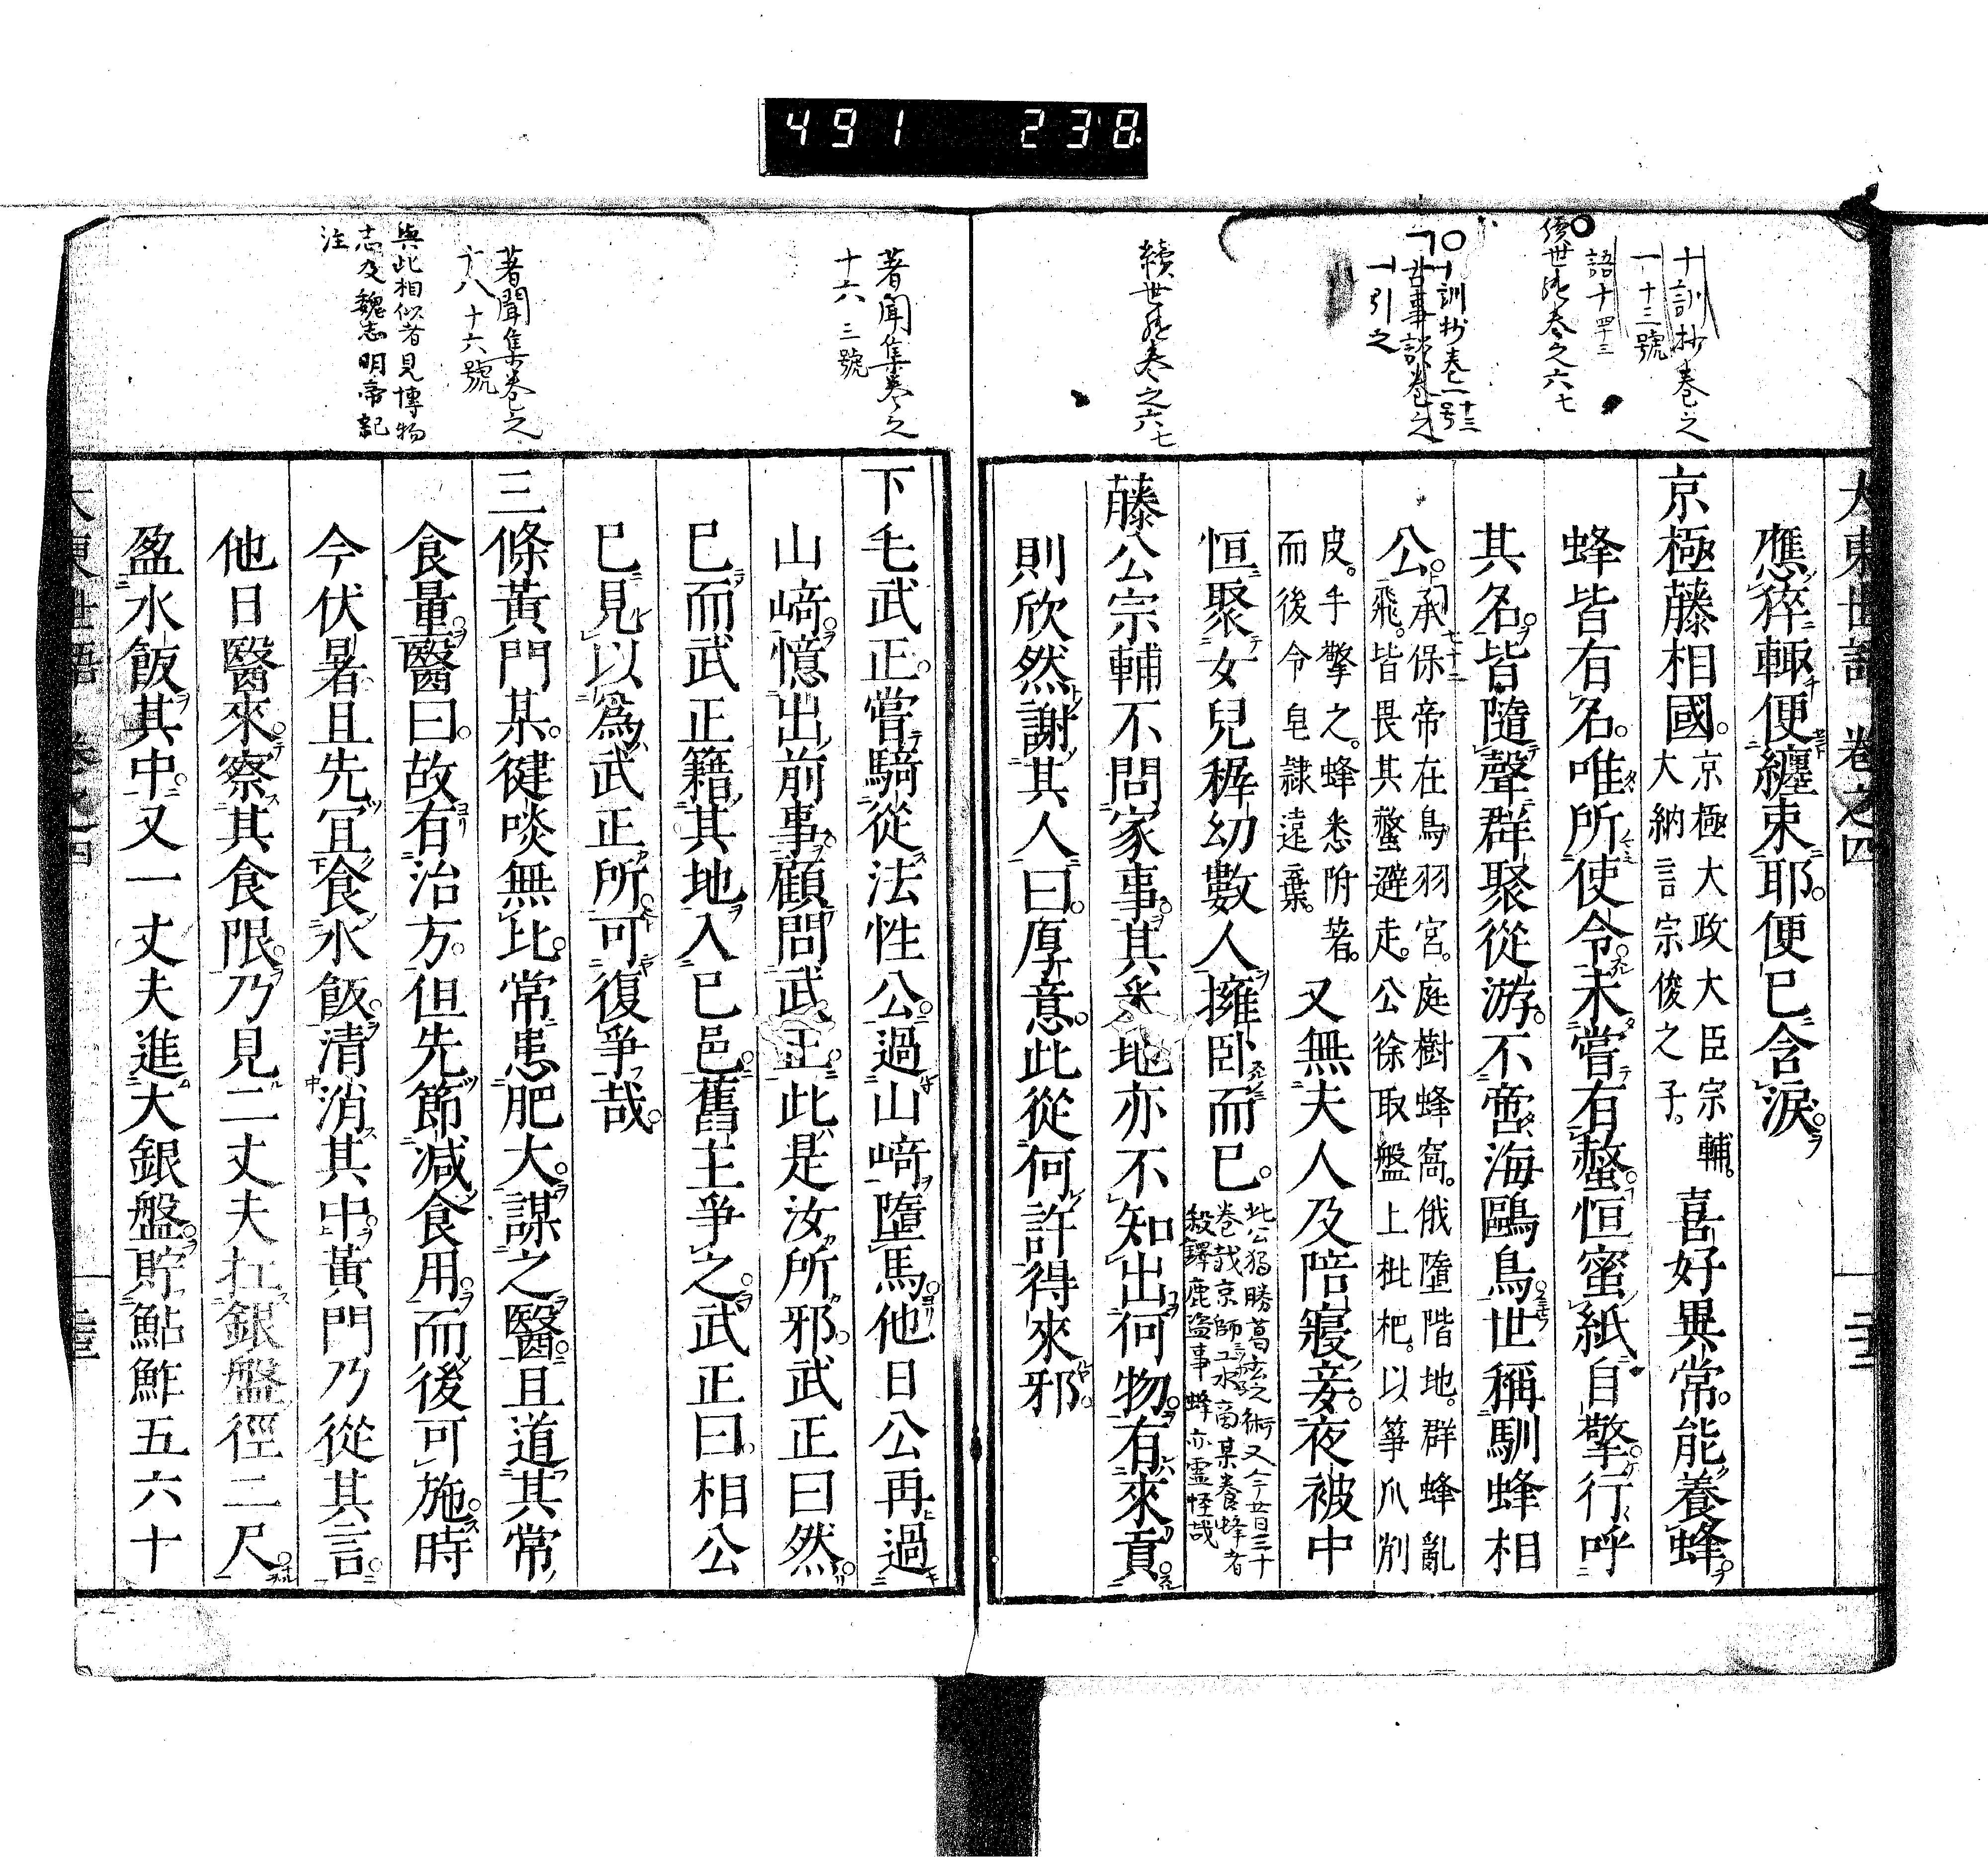 491 238
十訓抄巻之
一 十三號
語十四三
續世継巻之六七
十訓抄巻一 十三号
古事談巻之
一引之
續世継巻之六七
大東世語 卷之四
應猝輙便纏束耶。便已含淚。
京極藤相國。京極大政大臣宗輔。
大納言宗俊之子。喜好異常。能養蜂。
蜂皆有名。唯所使令。未嘗有螫。恒蜜紙自擎行。呼
其名。皆隨聲群聚從游。不啻海鷗鳥。世稱馴蜂相
公。承保帝在鳥羽宮。庭樹蜂窩。俄墮階地。群蜂亂
飛。皆畏其螫避走。公徐取盤上枇杷。以箏爪削
皮。手擎之。蜂悉附著。
而後令皂隷遠棄。又無夫人及陪寢妾。夜被中
恒聚女兒穉幼數人擁臥而已。
此公猶勝葛玄之術又今廿日三十
卷哉京師工水商某養蜂者
殺鐸鹿盗事蜂亦霊怪哉
藤公宗輔不問家事。其采地亦不知出何物。有來貢。
則欣然謝其人曰。厚意。此從何許得來邪
著聞集巻之
十六 三號
著聞集巻之
十八 十六號
與此相似者見博物
志及魏志明帝記
注
下毛武正。嘗騎從法性公。過山﨑墮馬。他日公再過
山﨑。憶出前事。顧問武正。此是汝所邪。武正曰然
已而武正籍其地入已邑。舊主爭之。武正曰。相公
已見以爲武正所。可復爭哉。
三條黃門某。健啖無比。常患肥大。謀之醫。且道其常
食量。醫曰。故有治方。但先節減食用。而後可施。時
今伏暑。且先宜食水飯。清消其中。黃門乃從其言。
他日醫來。察其食限。乃見二丈夫扛銀盤徑二尺。
盈水飯其中。又一丈夫進大銀盤。貯鮎鮓五六十
大東世語 卷之四